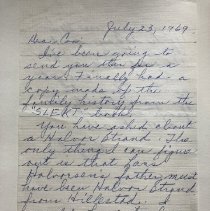 July 23, 1969
Dear Con,
I've been going to
send you this for a
year. Finally had a
copy made of the
family history from the
"SLEKT" book.
You have asked about
a Halvor Strand. The
only thing I can figure
out is that Lars
Halvorsen's father must
have been Halvor Strand
from Hillestad. I